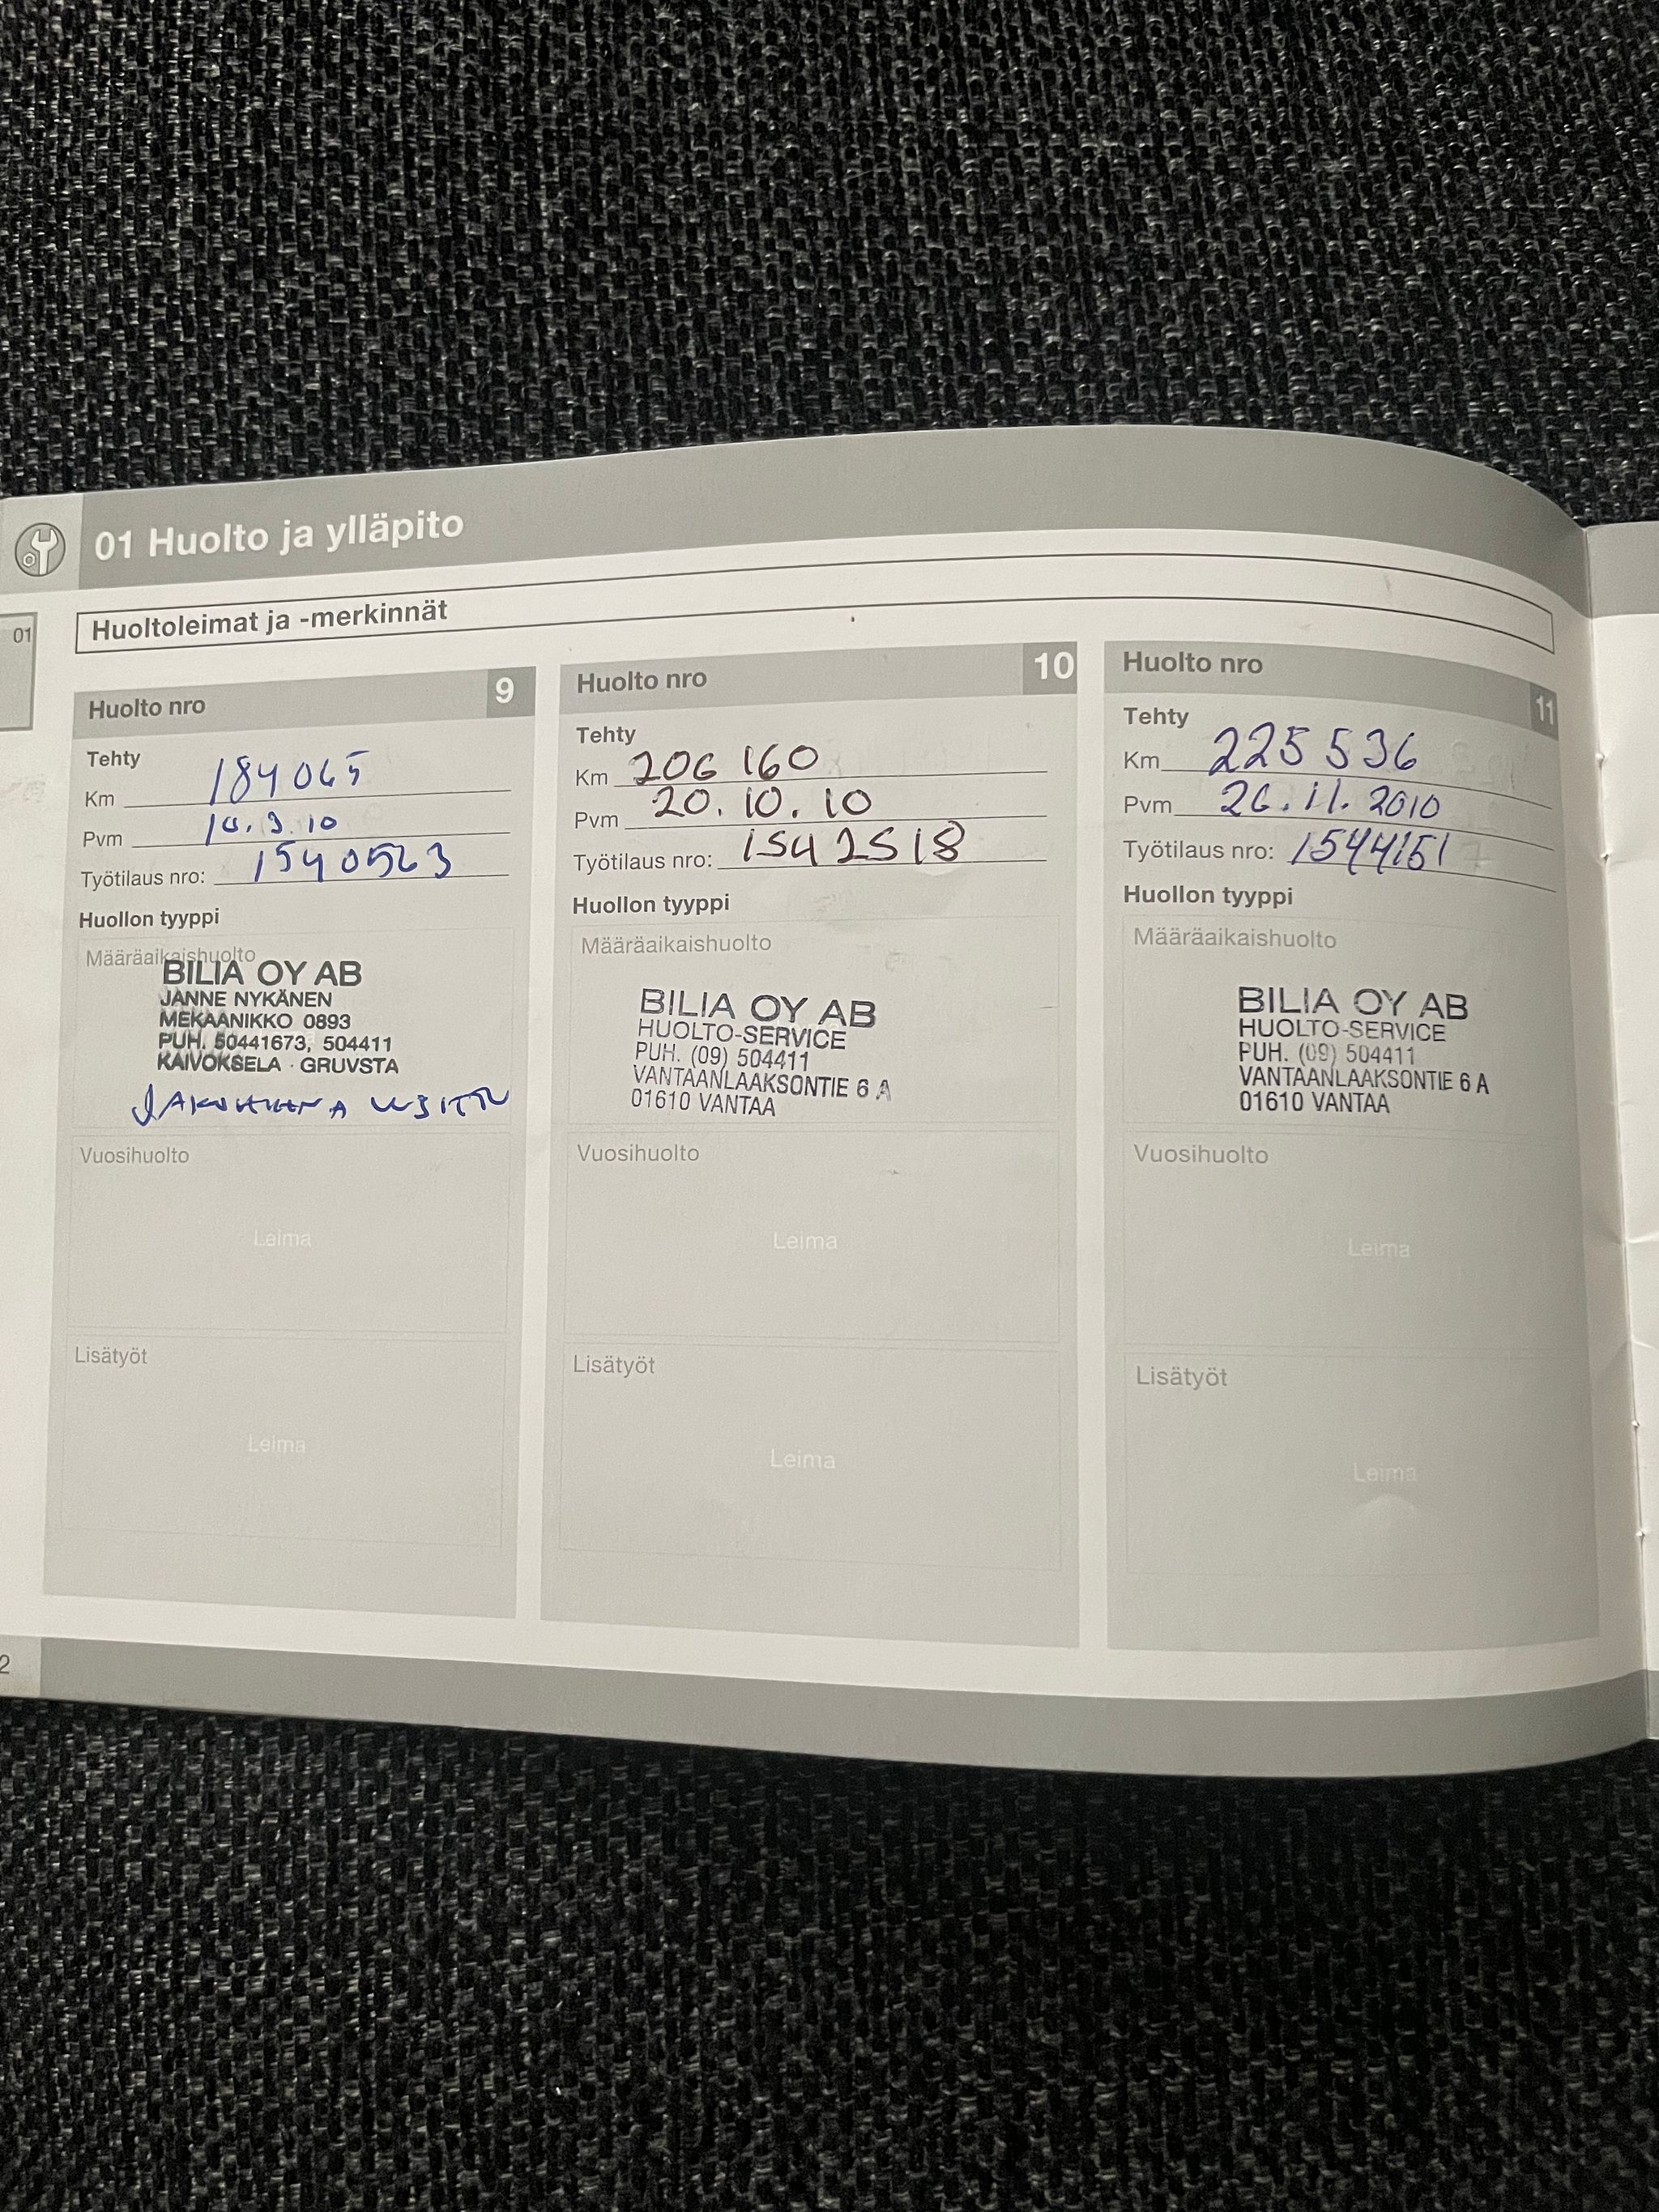 01 Huolto ja ylläpito
01
Huoltoleimat ja -merkinnät
Huolto nro 9
Tehty
Km 184065
Pvm 10.3.10
Työtilaus nro: 1540563
Huollon tyyppi
Määräaikaishuolto
BILIA OY AB
JANNE NYKÄNEN
MEKAANIKKO 0893
PUH. 50441673, 504411
KAIVOKSELA · GRUVSTA
Vuosihuolto
Leima
Lisätyöt
Leima
Huolto nro 10
Tehty
Km 206 160
Pvm 20.10.10
Työtilaus nro: 1542518
Huollon tyyppi
Määräaikaishuolto
BILIA OY AB
HUOLTO-SERVICE
PUH. (09) 504411
VANTAANLAAKSONTIE 6 A
01610 VANTAA
Vuosihuolto
Leima
Lisätyöt
Leima
Huolto nro 11
Tehty
Km 225 536
Pvm 26.11.2010
Työtilaus nro: 1544151
Huollon tyyppi
Määräaikaishuolto
BILIA OY AB
HUOLTO-SERVICE
PUH. (09) 504411
VANTAANLAAKSONTIE 6 A
01610 VANTAA
Vuosihuolto
Leima
Lisätyöt
Leima
2